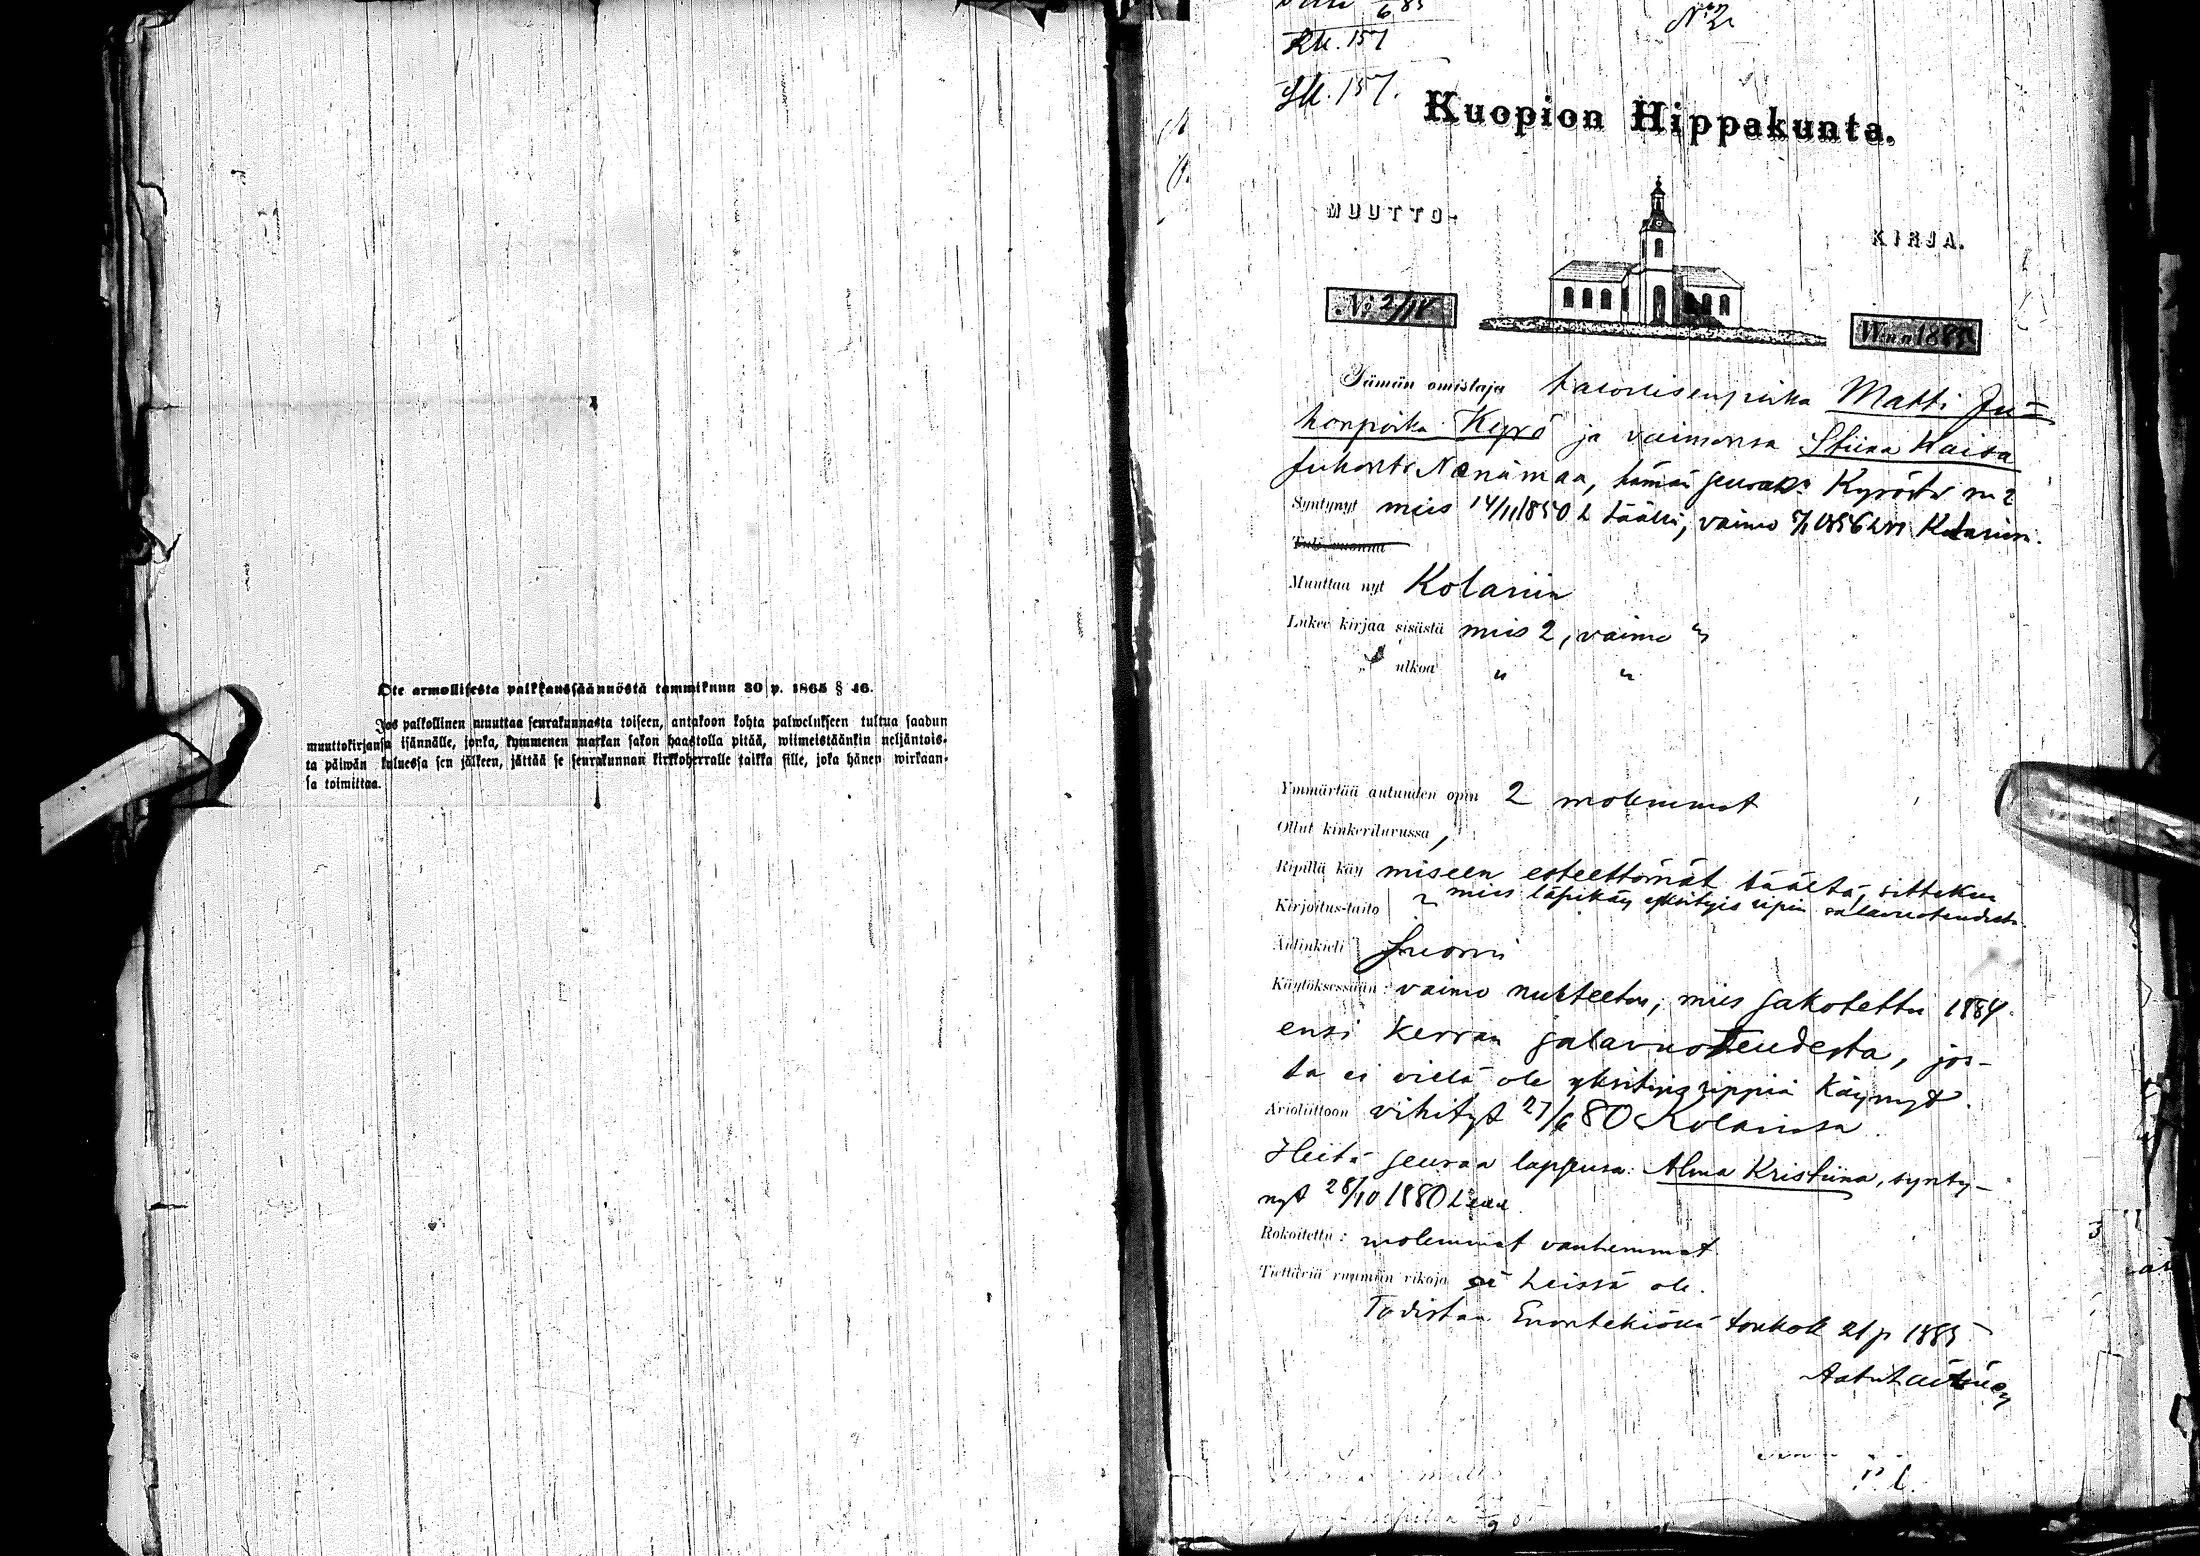 Ote armollisesta palkkaussäännöstä tammikuun 30 p. 1865 § 46.
Jos palkollinen muuttaa seurakunnasta toiseen, antakoon kohta palwelukseen tultua saadun
muuttokirjansa isännälle, jonka, kymmenen markan sakon haastolla pitää, wiimeistäänkin neljäntois-
ta päiwän kuluessa sen jälkeen, jättää se seurakunnan kirkkoherralle taikka sille, joka hänen wirkaan-
sa toimittaa.
6 85
Rk. 157
Sk. 157.
No 2
Kuopion Hippakunta.
MUUTTO- KIRJA.
No 2/IV Wnna 1885
Tämän omistaja talollisenpoika Matti Ju=
honpoika Kyrö ja vaimonsa Stiina Kaisa
Juhont. Nänämaa, tämän seurak. Kyröstä n:o 2
Syntynyt mies 14/11 1850 täällä, vaimo 1856 Kolarissa.
Tuli vuonna
Muuttaa nyt Kolariin
Lukee kirjaa sisästä mies 2, vaimo "
" ulkoa " "
Ymmärtää autuuden opin 2 molemmat
Ollut kinkeriluvussa,
Ripillä käy miseen esteettömät täältä, sittekun
mies läpikäy yksityis ripin salavuoteudesta.
Kirjoitus-taito
Äidinkieli Suomi
Käytöksessään: vaimo nuhteeton, mies sakotettu 1884
ensi kerran salavuoteudesta, jos-
ta ei vielä ole yksityisrippiä käynyt.
Avioliittoon vihityt 27/6 80 Kolarissa.
Heitä seuraa lapsensa: Alma Kristiina, synty-
nyt 28/10 1880
Rokoitettu: molemmat vanhemmat
Tiettäviä ruumiin vikoja ei heissä ole.
Todistaa Enontekiössä toukok. 21 p. 1885
Aatu Laitinen